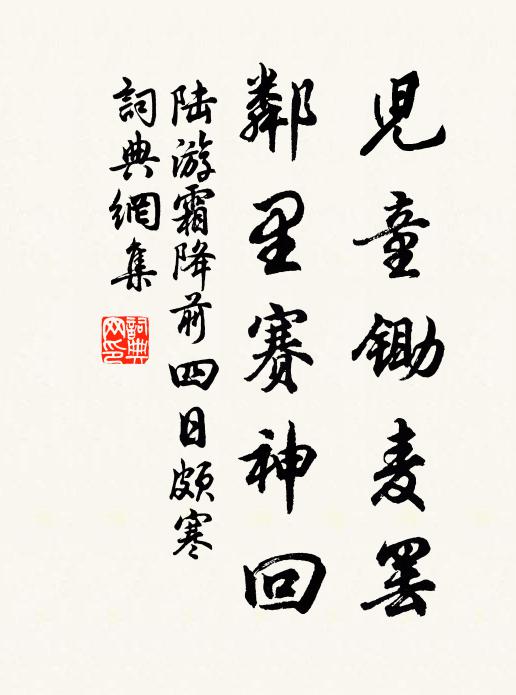 児童鋤麦罢
鄰里賽神回
陆游霜降前四日頗寒
詞典網集
詞典网印